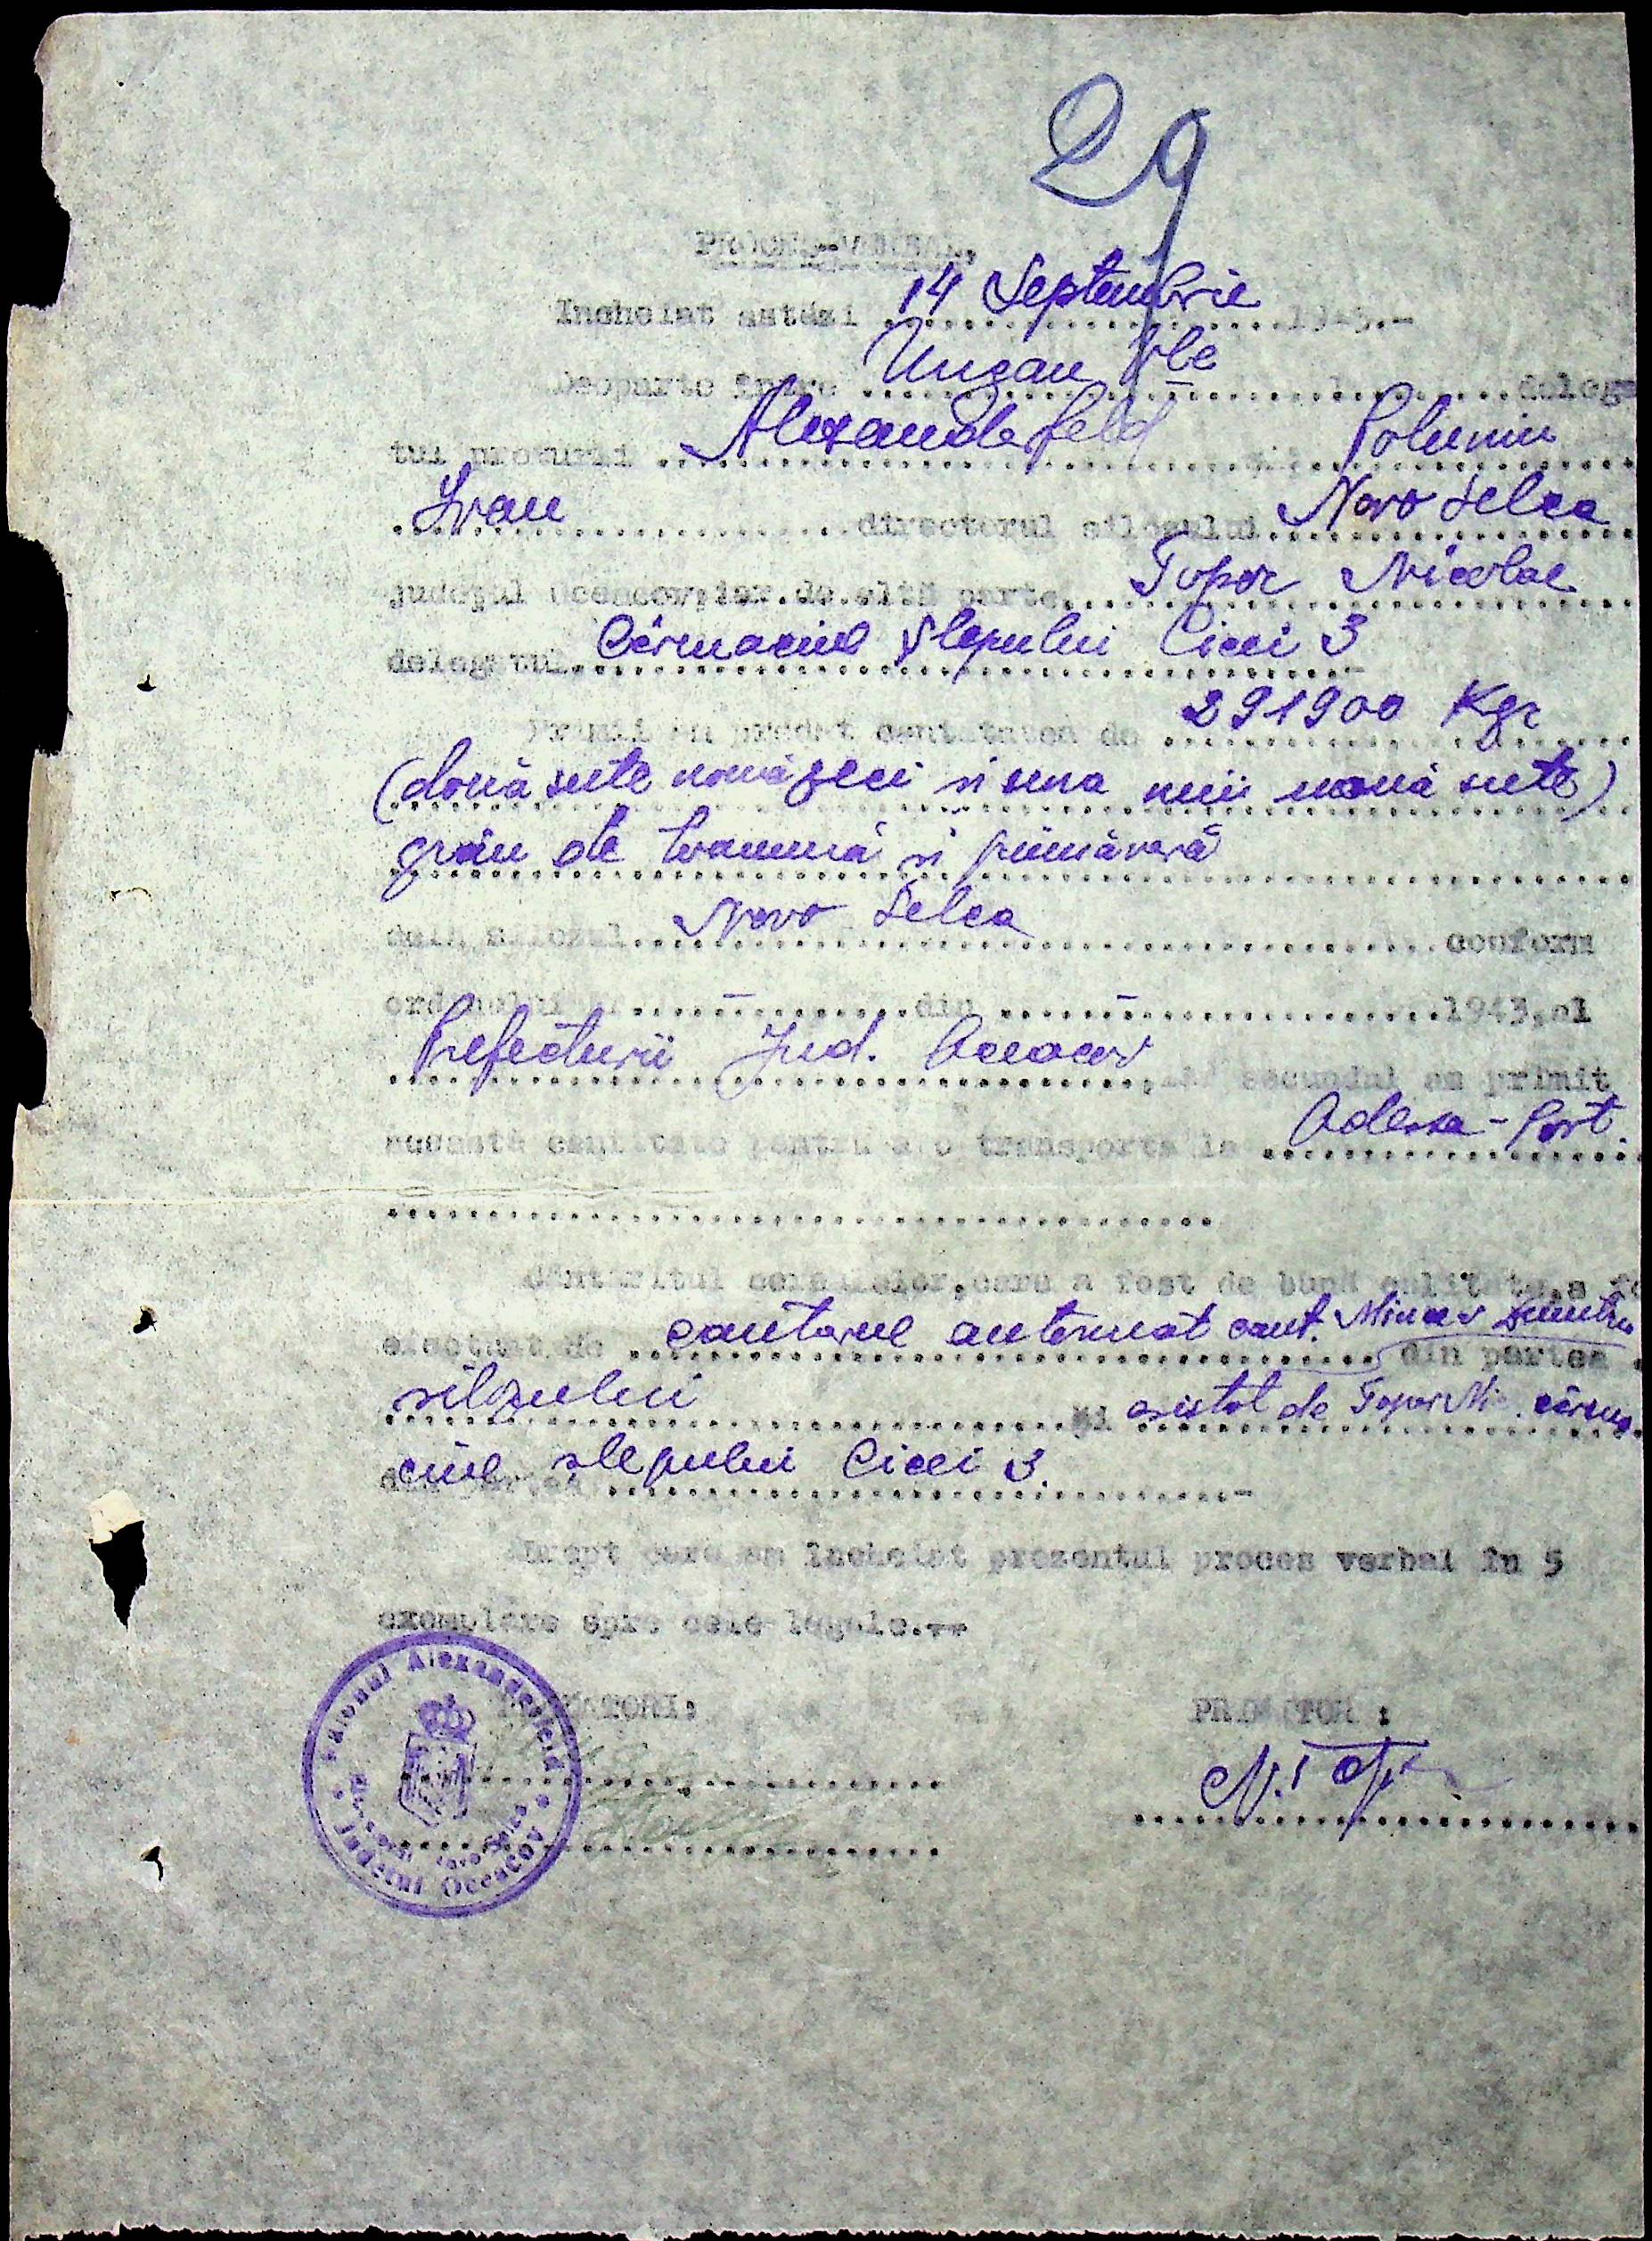 29
PROCES-VERBAL.
Incheiat astăzi 14 Septembrie 1943.-
Deoparte între Ungan delega
tul preturii Alexanderfeld și Polumin
Ivan directorul silozului Novo Selca
județul Oceacov, iar de altă parte, Topor Nicolae
delegatul Cârmaciul șlepului Cicei 3
Primii au predat cantitatea de 291900 Kgr
(două sute nouăzeci si una mii nouă sute)
grâu de toamnă si primăvară
din silozul Novo Selca conform
ordinului Nr. - din - 1943, al
Prefecturii Jud. Oceacov, iar secundul am primit
această cantitate pentru a o transporta la Odessa-Port.
Cântăritul cerealelor, care a fost de bună calitate, a fo
efectuat de cantarul automat cant. Mincev Dumitru din partea
silozului și asistat de Topor Nic. cârma
ciul slepului Cicei 3.
din partea
Drept care am încheiat prezentul proces verbal în 5
exemplare spre cele legale.--
PREDATORI: PRIMITOR :
N. Topor
Raionul Alexanderfeld
Judetul Oceacov